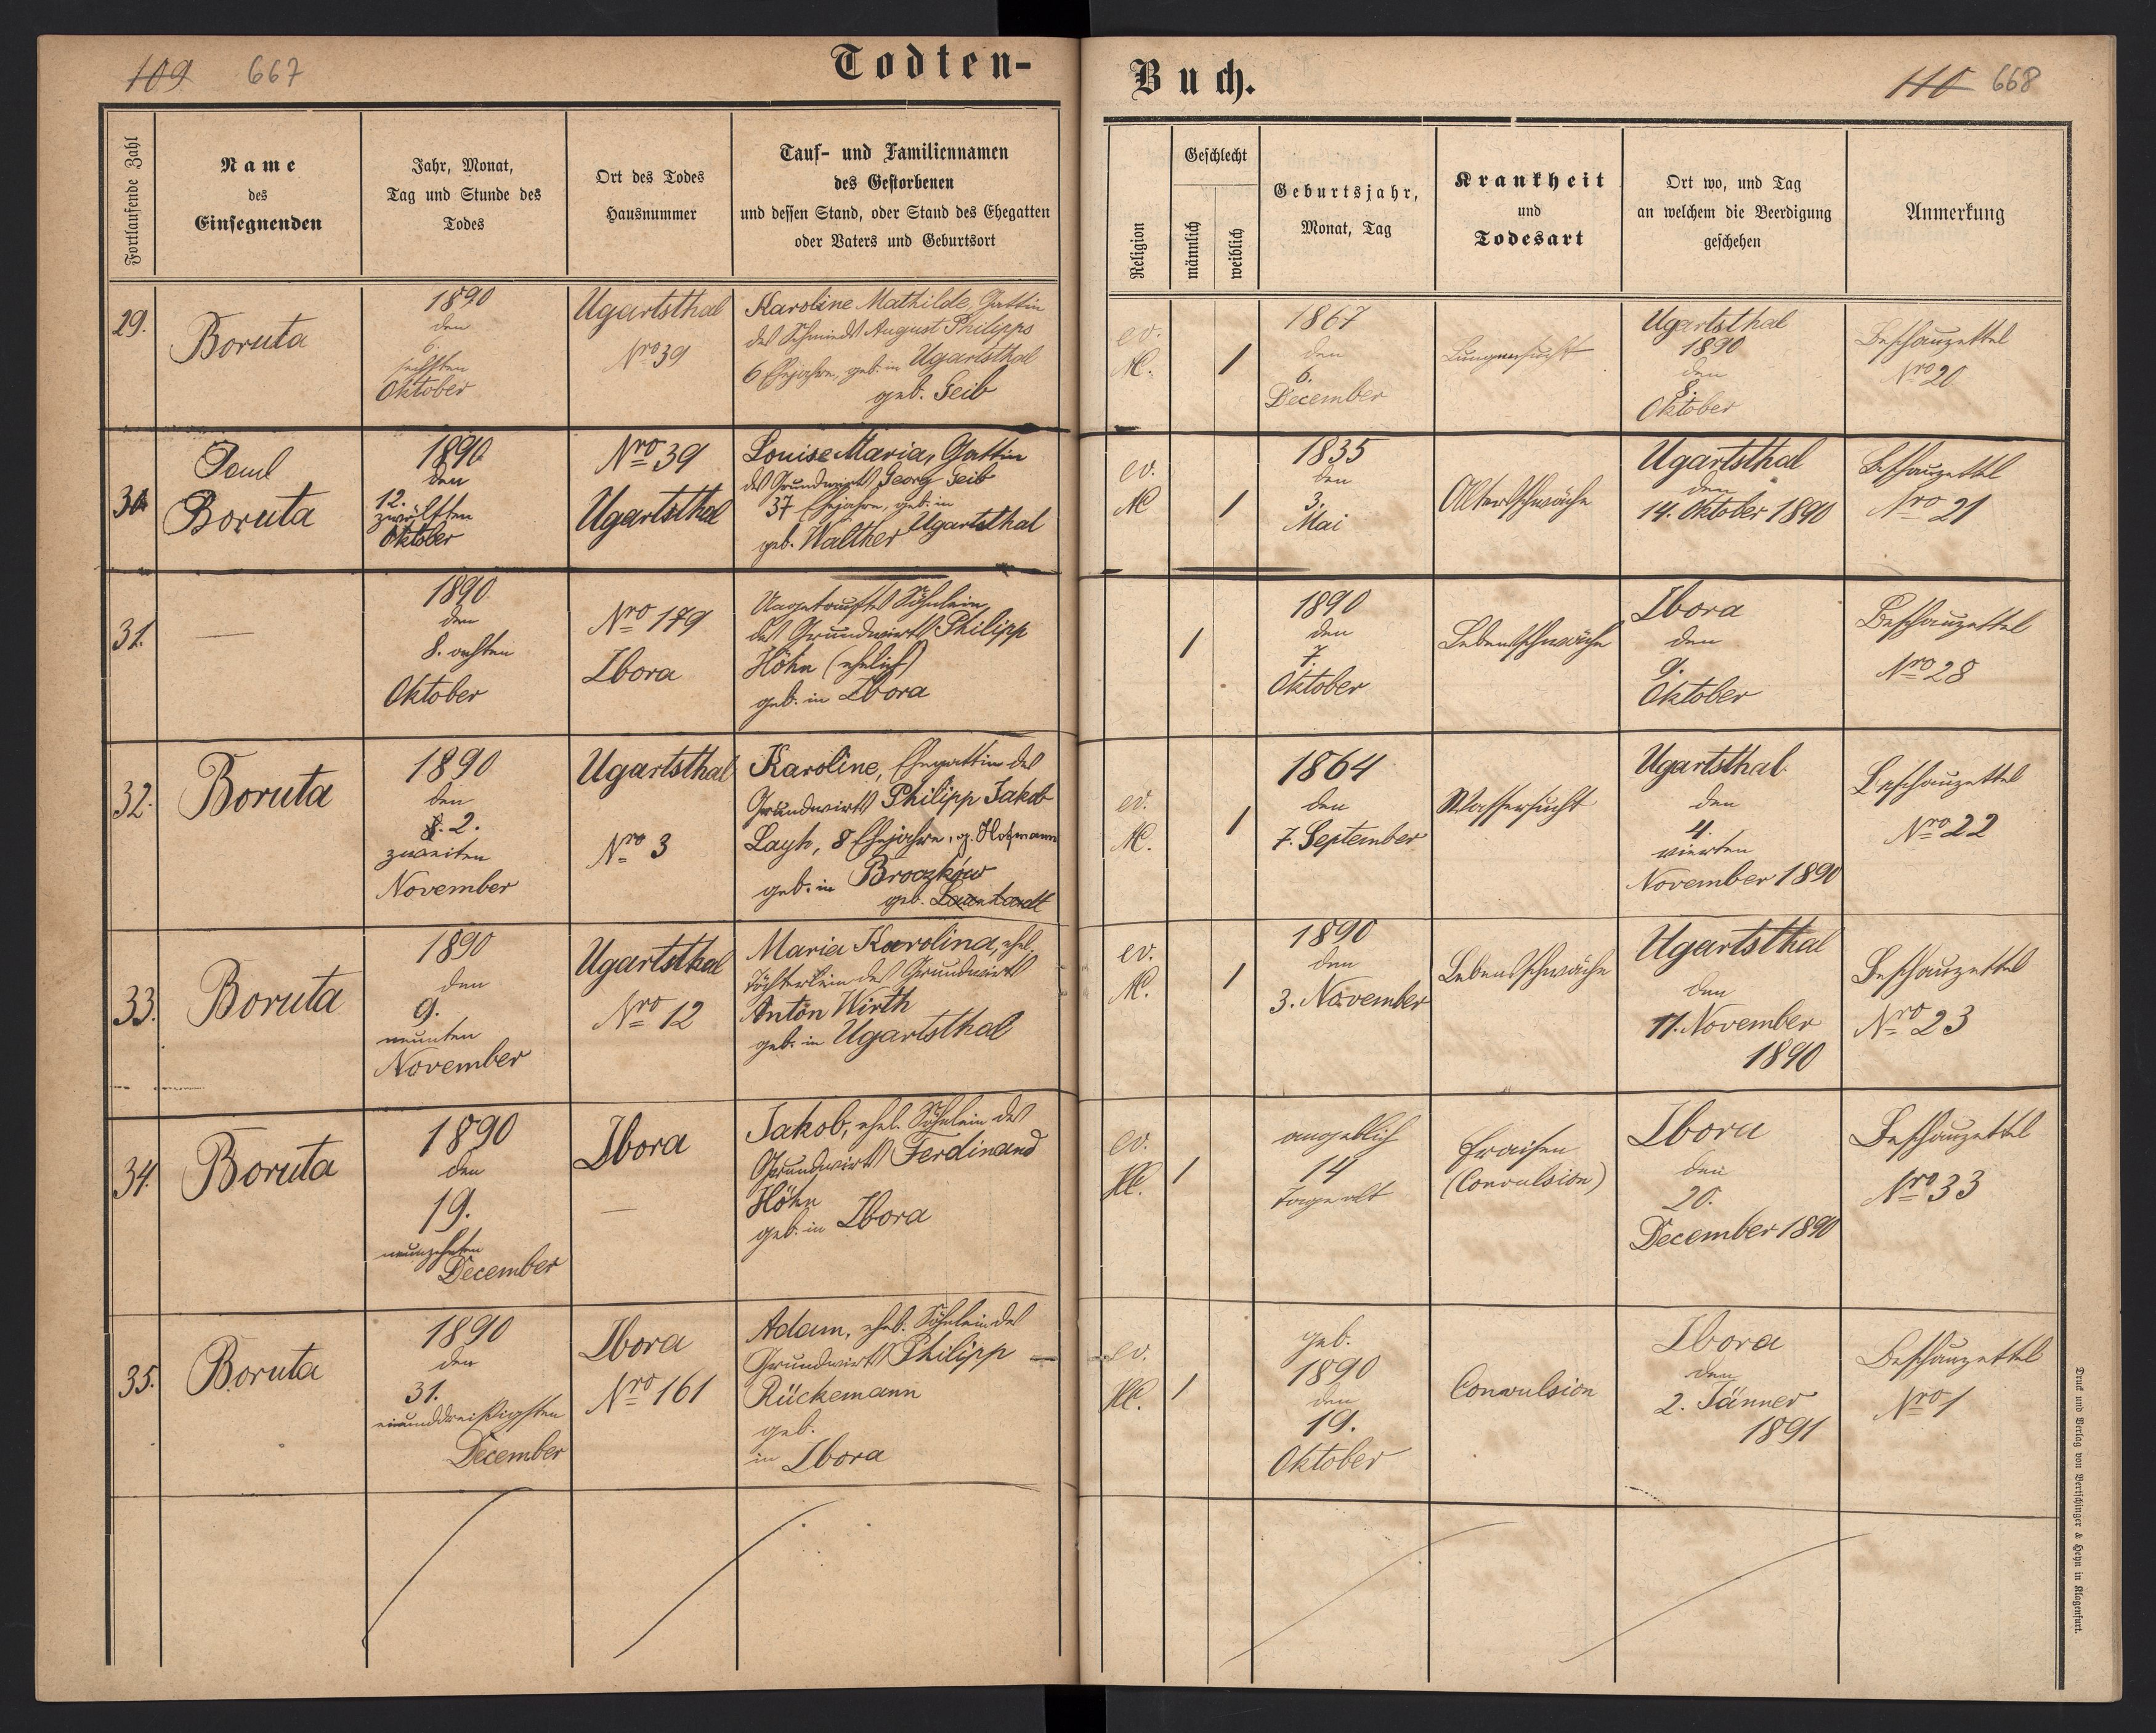 109 667
Todten-
Fortlaufende Zahl
Name
des
Einsegnenden
Jahr, Monat,
Tag und Stunde des
Todes
Ort des Todes
Hausnummer
Tauf- und Familiennamen
des Gestorbenen
und dessen Stand, oder Stand des Ehegatten
oder Vaters und Geburtsort
29.
Boruta
1890
den
6.
sechsten
Oktober
Ugartsthal
Nro 39
Karoline Mathilde, Gattin
des Schmieds August Philipps
6 Ehejahre, geb. in Ugartsthal
geb. Geib
30.
Paul
Boruta
1890
den
12.
zwölften
Oktober
Nro 39
Ugartsthal
Louise Maria, Gattin
des Grundwirts Georg Geib
37 Ehejahre, geb. in
Ugartsthal
geb. Walther
31.
—
1890
den
8. achten
Oktober
Nro 179
Zbora
Ungetauftes Söhnlein
des Grundwirts Philipp
Höhn (ehelich)
geb. in Zbora
32.
Boruta
1890
den
8. 2.
zweiten
November
Ugartsthal
Nro 3
Karoline, Ehegattin des
Grundwirts Philipp Jakob
Layh, 8 Ehejahre, g. Hofmann
geb. in Broczków
geb.
33.
Boruta
1890
den
9.
neunten
November
Ugartsthal
Nro 12
Maria Karolina, ehel.
Töchterlein des Grundwirts
Anton Wirth
geb. in Ugartsthal
34.
Boruta
1890
den
19.
neunzehnten
December
Zbora
—
Jakob, ehel. Söhnlein des
Grundwirts Ferdinand
Höhn
geb. in Zbora
35.
Boruta
1890
den
31.
einunddreißigsten
December
Zbora
Nro 161
Adam, ehel. Söhnlein des
Grundwirts Philipp —
Rückemann
geb.
in Zbora
Buch.
110 668
Religion
Geschlecht
männlich
weiblich
Geburtsjahr,
Monat, Tag
Krankheit
und
Todesart
Ort wo, und Tag
an welchem die Beerdigung
geschehen
Anmerkung
ev.
1
1867
den
6.
December
Lungensucht
Ugartsthal
1890
den
8.
Oktober
Beschauzettel
Nro 20
ev.
1
1835
den
3.
Mai
Altersschwäche
Ugartsthal
den
14. Oktober 1890
Beschauzettel
Nro 21
1
1890
den
7.
Oktober
Lebensschwäche
Zbora
den
9.
Oktober
Beschauzettel
Nro 28
ev.
1
1864
den
7. September
Wassersucht
Ugartsthal
den
4.
vierten
November 1890
Beschauzettel
Nro 22
ev.
1
1890
den
3. November
Lebensschwäche
Ugartsthal
den
11. November
1890
Beschauzettel
Nro 23
ev.
1
angeblich
14
Tage alt
Fraisen
(Convulsion)
Zbora
den
20.
December 1890
Beschauzettel
Nro 33
ev.
1
geb.
1890
den
19.
Oktober
Convulsion
Zbora
den
2. Jänner
1891
Beschauzettel
Nro 1
Druck und Verlag von Bertschinger & Heyn in Klagenfurt.